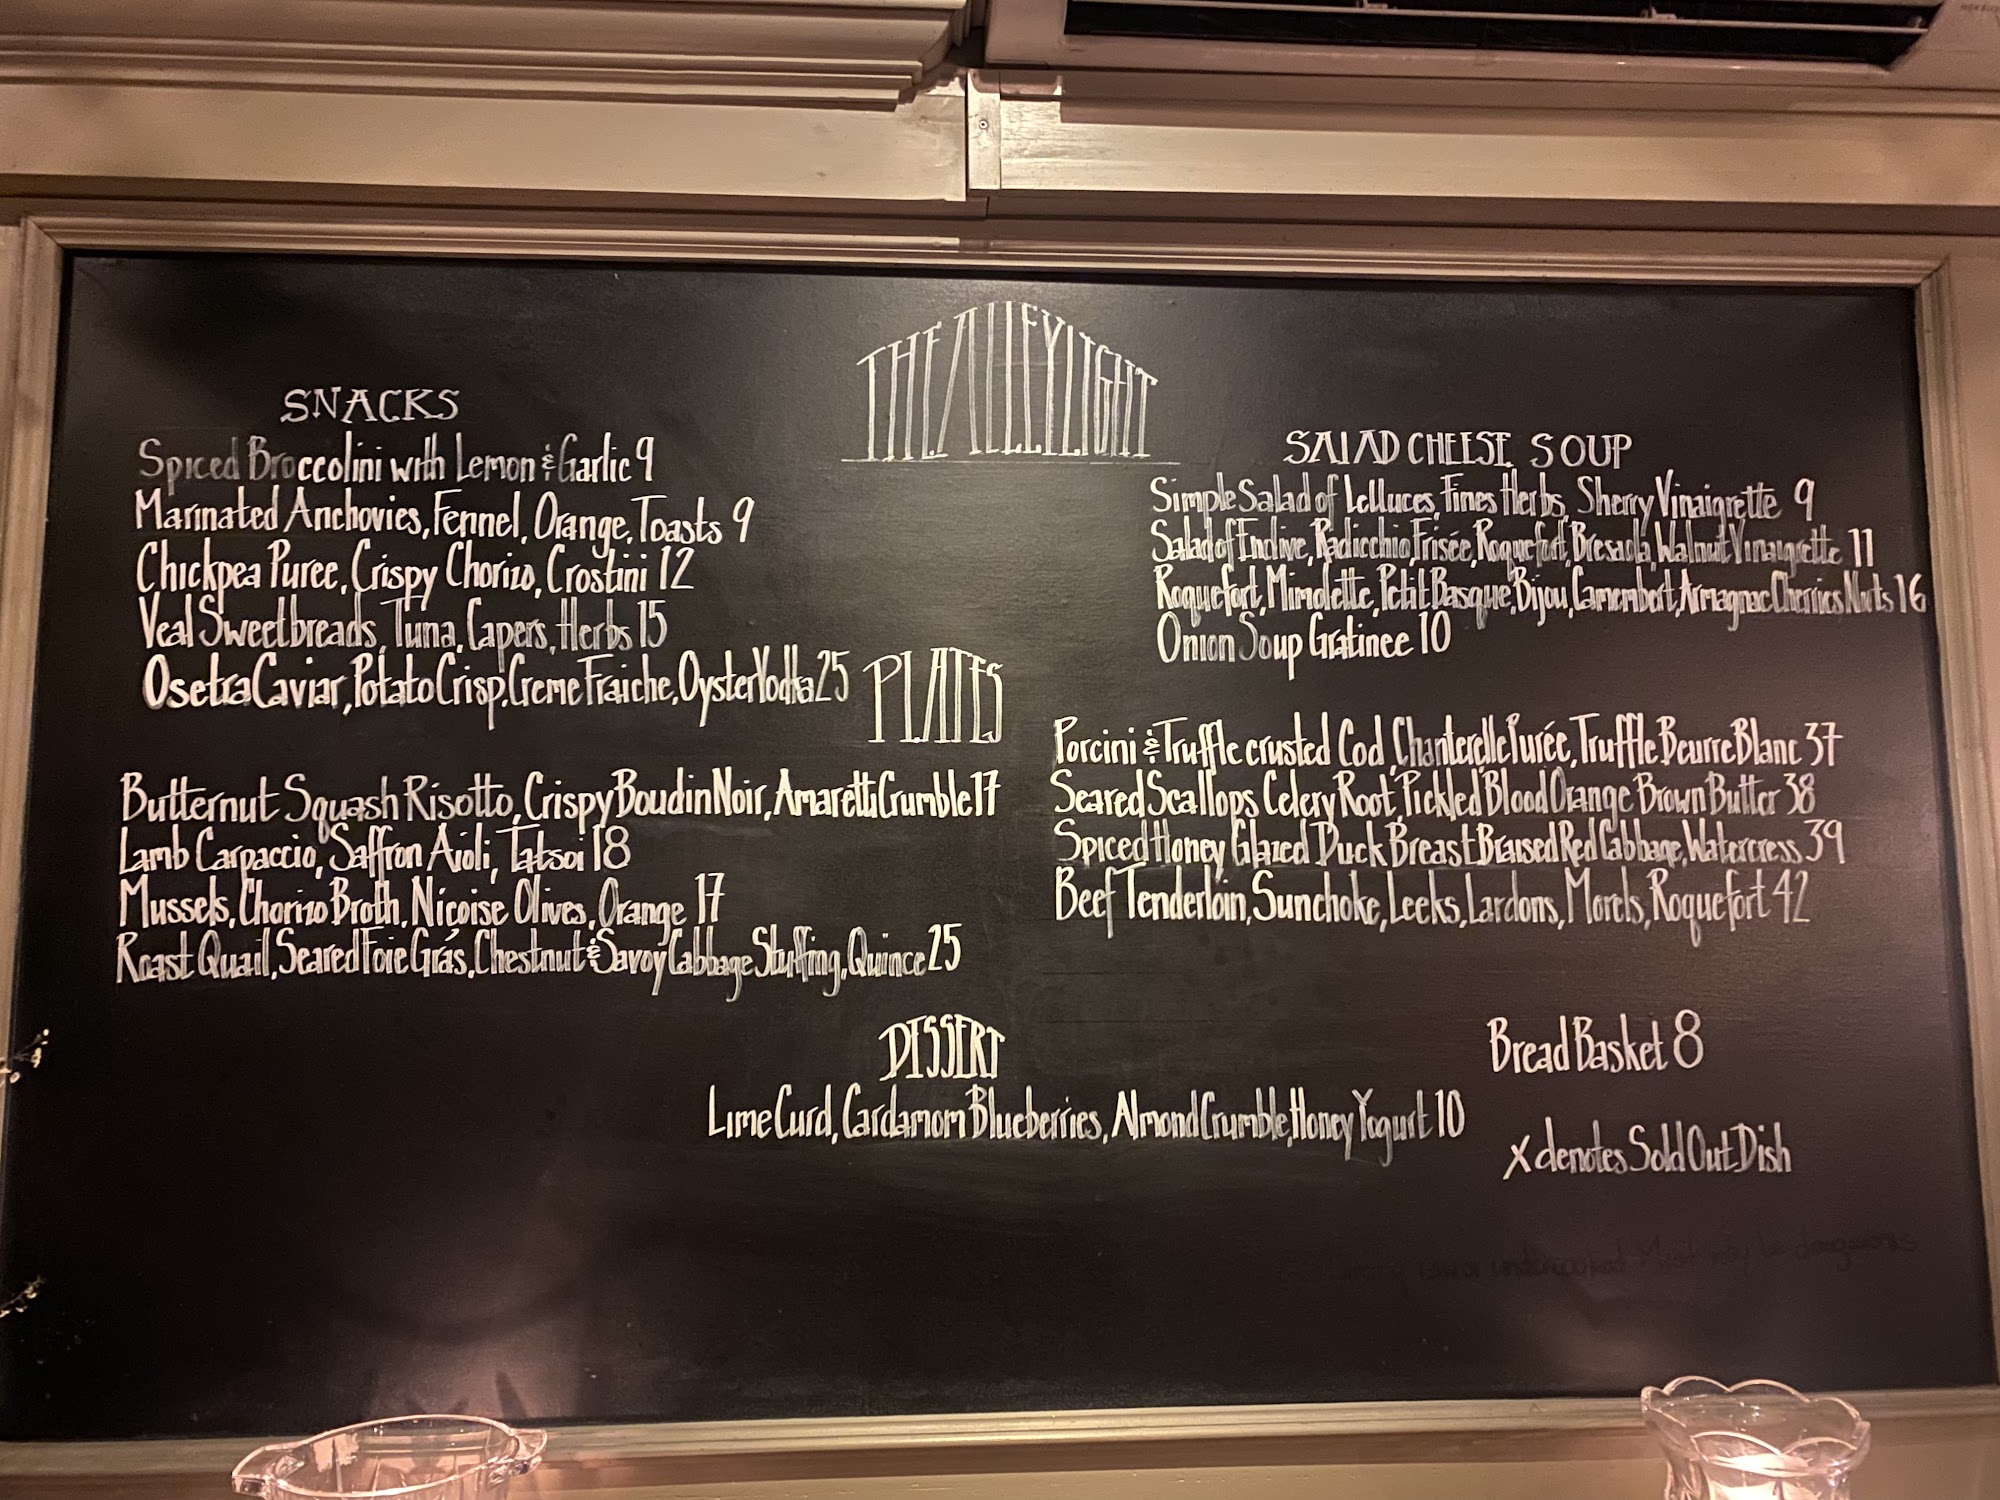 THE ALLEY LIGHT
SNACKS
Spiced Broccolini with Lemon & Garlic 9
Marinated Anchovies, Fennel, Orange, Toasts 9
Chickpea Puree, Crispy Chorizo, Crostini 12
Veal Sweetbreads, Tuna, Capers, Herbs 15
Osetra Caviar, Potato Crisp, Creme Fraiche, Oyster Vodka 25
SALAD CHEESE SOUP
Simple Salad of Lettuces, Fines Herbs, Sherry Vinaigrette 9
Salad of Endive, Radicchio, Frisée, Roquefort, Bresaola, Walnut Vinaigrette 11
Roquefort, Mimolette, Petit Basque, Bijou, Camembert, Armagnac Cherries Nuts 16
Onion Soup Gratinee 10
PLATES
Butternut Squash Risotto, Crispy Boudin Noir, Amaretti Crumble 17
Lamb Carpaccio, Saffron Aioli, Tatsoi 18
Mussels, Chorizo Broth, Niçoise Olives, Orange 17
Roast Quail, Seared Foie Grás, Chestnut & Savoy Cabbage Stuffing, Quince 25
Porcini & Truffle crusted Cod, Chanterelle Purée, Truffle Beurre Blanc 37
Seared Scallops Celery Root, Pickled Blood Orange Brown Butter 38
Spiced Honey Glazed Duck Breast Braised Red Cabbage, Watercress 39
Beef Tenderloin, Sunchoke, Leeks, Lardons, Morels, Roquefort 42
DESSERT
Lime Curd, Cardamom Blueberries, Almond Crumble, Honey Yogurt 10
Bread Basket 8
X denotes Sold Out Dish
undercooked Meat may be dangerous